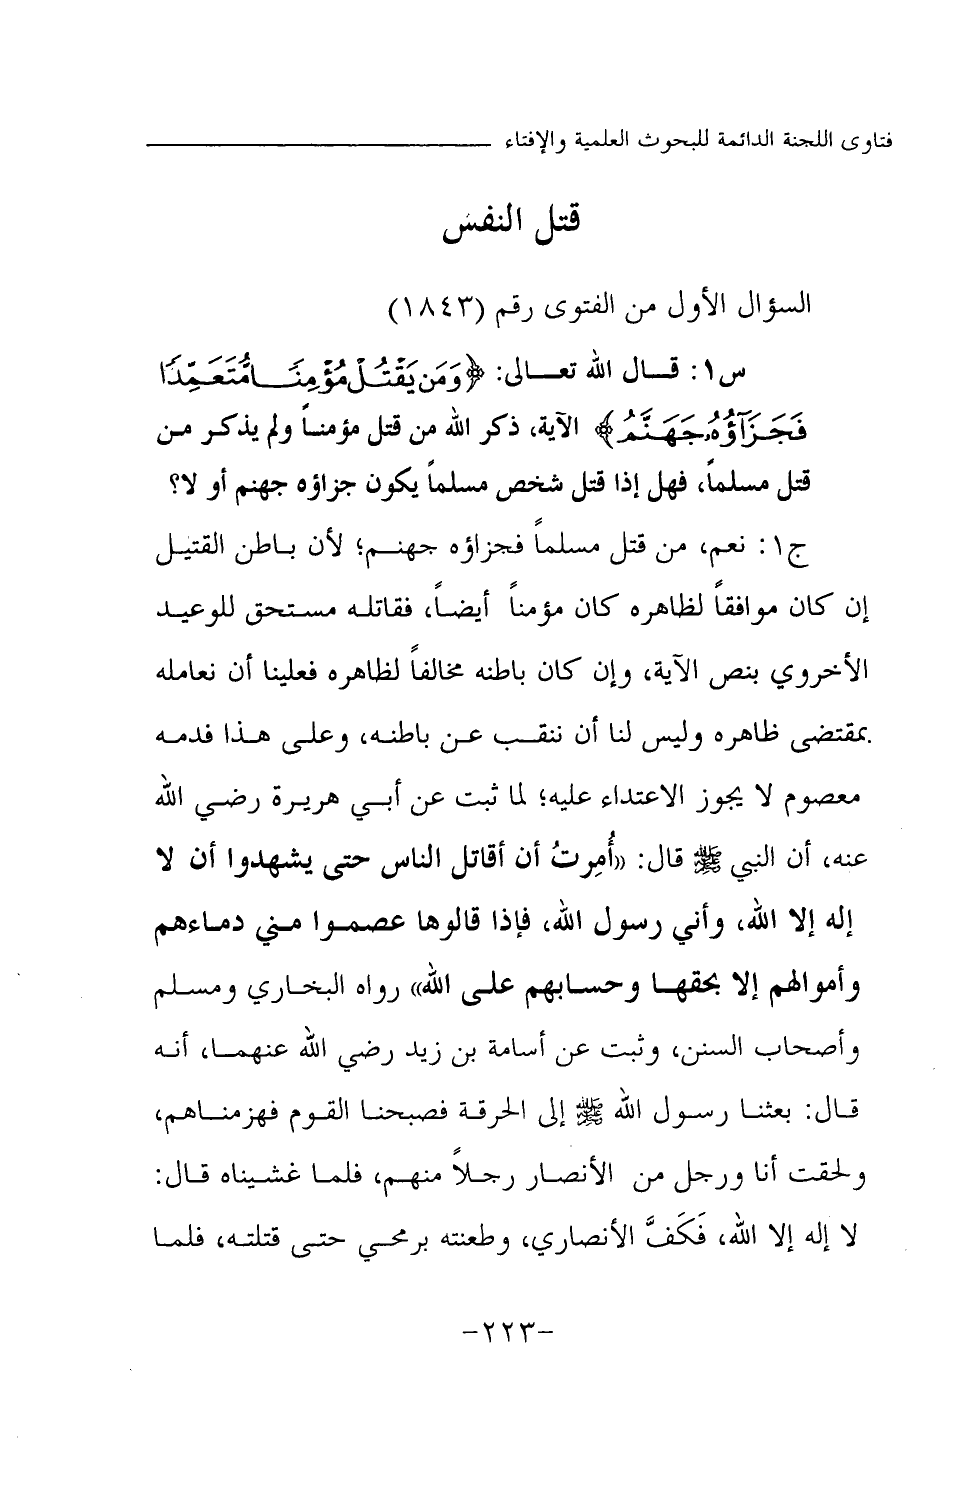 فتاوى اللجنة الدائمة للبحوث العلمية والإفتاء
قتل النفس
السؤال الأول من الفتوى رقم (١٨٤٣)
س١: قـــال الله تعـــالى: ﴿وَمَن يَقْتُلْ مُؤْمِنًا مُّتَعَمِّدًا
فَجَزَآؤُهُۥ جَهَنَّمُ﴾ الآية، ذكر الله من قتل مؤمنـاً ولم يذكـر مـن
قتل مسلماً، فهل إذا قتل شخص مسلماً يكون جزاؤه جهنم أو لا؟
ج١: نعم، من قتل مسلماً فجزاؤه جهنـم؛ لأن بـاطن القتيـل
إن كان موافقاً لظاهره كان مؤمناً أيضـاً، فقاتلـه مسـتحق للوعيـد
الأخروي بنص الآية، وإن كان باطنه مخالفاً لظاهره فعلينا أن نعامله
بمقتضى ظاهره وليس لنا أن ننقـب عـن باطنـه، وعلـى هـذا فدمـه
معصوم لا يجوز الاعتداء عليه؛ لما ثبت عن أبـي هريـرة رضـي الله
عنه، أن النبي ﷺ قال: «أُمِرتُ أن أقاتل الناس حتى يشهدوا أن لا
إله إلا الله، وأني رسول الله، فإذا قالوها عصمـوا مـني دماءهم
وأموالهم إلا بحقهـا وحسـابهم علـى الله» رواه البخـاري ومسـلم
وأصحاب السنن، وثبت عن أسامة بن زيد رضي الله عنهمـا، أنـه
قـال: بعثنـا رسـول الله ﷺ إلى الحرقة فصبحنـا القـوم فهزمنـاهم،
ولحقت أنا ورجل من الأنصـار رجـلاً منهـم، فلمـا غشـيناه قـال:
لا إله إلا الله، فَكَفَّ الأنصاري، وطعنته برمحـي حتـى قتلتـه، فلمـا
-٢٢٣-